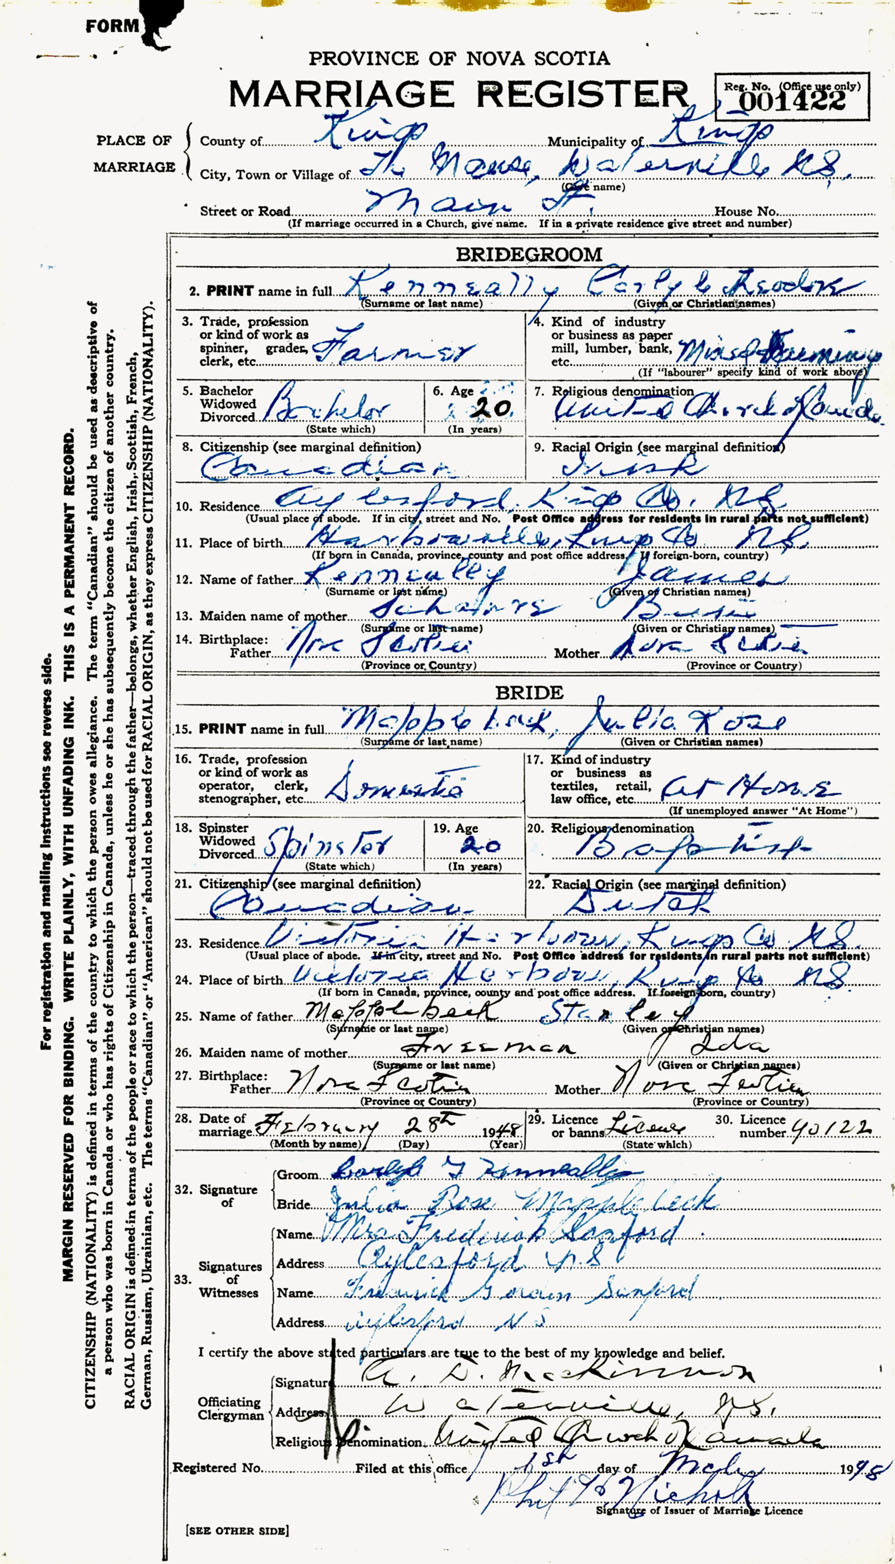 FORM
PROVINCE OF NOVA SCOTIA
MARRIAGE REGISTER
Reg. No. (Office use only)
001422
PLACE OF MARRIAGE
County of Kings Municipality of Kings
City, Town or Village of The Manse, Waterville N.S.
(Give name)
Street or Road Main St. House No.
(If marriage occurred in a Church, give name. If in a private residence give street and number)
BRIDEGROOM
2. PRINT name in full Kenneally Carlyle Theodore
(Surname or last name) (Given or Christian names)
3. Trade, profession or kind of work as spinner, grader, clerk, etc. Farmer
4. Kind of industry or business as paper mill, lumber, bank, etc. Mixed Farming
(If "labourer" specify kind of work above)
5. Bachelor Widowed Divorced Bachelor
(State which)
6. Age 20
(In years)
7. Religious denomination United Church of Canada
8. Citizenship (see marginal definition) Canadian
9. Racial Origin (see marginal definition) Irish
10. Residence Aylesford, Kings Co. N.S.
(Usual place of abode. If in city, street and No. Post Office address for residents in rural parts not sufficient)
11. Place of birth Harbourville, Kings Co N.S.
(If born in Canada, province, county and post office address. If foreign-born, country)
12. Name of father Kenneally James
(Surname or last name) (Given or Christian names)
13. Maiden name of mother
(Surname or last name) (Given or Christian names)
14. Birthplace: Father Nova Scotia Mother Nova Scotia
(Province or Country) (Province or Country)
BRIDE
15. PRINT name in full Mapplebeck, Julia Rose
(Surname or last name) (Given or Christian names)
16. Trade, profession or kind of work as operator, clerk, stenographer, etc. Domestic
17. Kind of industry or business as textiles, retail, law office, etc. At Home
(If unemployed answer "At Home")
18. Spinster Widowed Divorced Spinster
(State which)
19. Age 20
(In years)
20. Religious denomination Baptist
21. Citizenship (see marginal definition) Canadian
22. Racial Origin (see marginal definition) Dutch
23. Residence Victoria Harbour, Kings Co N.S.
(Usual place of abode. If in city, street and No. Post Office address for residents in rural parts not sufficient)
24. Place of birth Victoria Harbour, Kings Co N.S.
(If born in Canada, province, county and post office address. If foreign-born, country)
25. Name of father Mapplebeck Stanley
(Surname or last name) (Given or Christian names)
26. Maiden name of mother Freeman Ida
(Surname or last name) (Given or Christian names)
27. Birthplace: Father Nova Scotia Mother Nova Scotia
(Province or Country) (Province or Country)
28. Date of marriage February 28th 1948
(Month by name) (Day) (Year)
29. Licence or banns Licence
(State which)
30. Licence number 90122
32. Signature of
Groom Carlyle T Kenneally
Bride Julia Rose Mapplebeck
33. Signatures of Witnesses
Name Mrs Frederick Sanford
Address Aylesford N.S
Name Frederick Sanford
Address Aylesford N S
I certify the above stated particulars are true to the best of my knowledge and belief.
Officiating Clergyman
Signature A. D. MacKinnon
Address Waterville, N.S.
Religious Denomination United Church of Canada
Registered No. Filed at this office 1st day of 1948
Signature of Issuer of Marriage Licence
[SEE OTHER SIDE]
For registration and mailing instructions see reverse side.
MARGIN RESERVED FOR BINDING. WRITE PLAINLY, WITH UNFADING INK. THIS IS A PERMANENT RECORD.
CITIZENSHIP (NATIONALITY) is defined in terms of the country to which the person owes allegiance. The term "Canadian" should be used as descriptive of
a person who was born in Canada or who has rights of Citizenship in Canada, unless he or she has subsequently become the citizen of another country.
RACIAL ORIGIN is defined in terms of the people or race to which the person—traced through the father—belongs, whether English, Irish, Scottish, French,
German, Russian, Ukrainian, etc. The terms "Canadian" or "American" should not be used for RACIAL ORIGIN, as they express CITIZENSHIP (NATIONALITY).